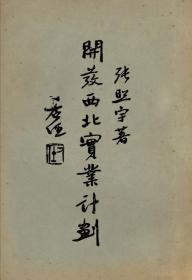 張照宇著
開發西北實業計劃